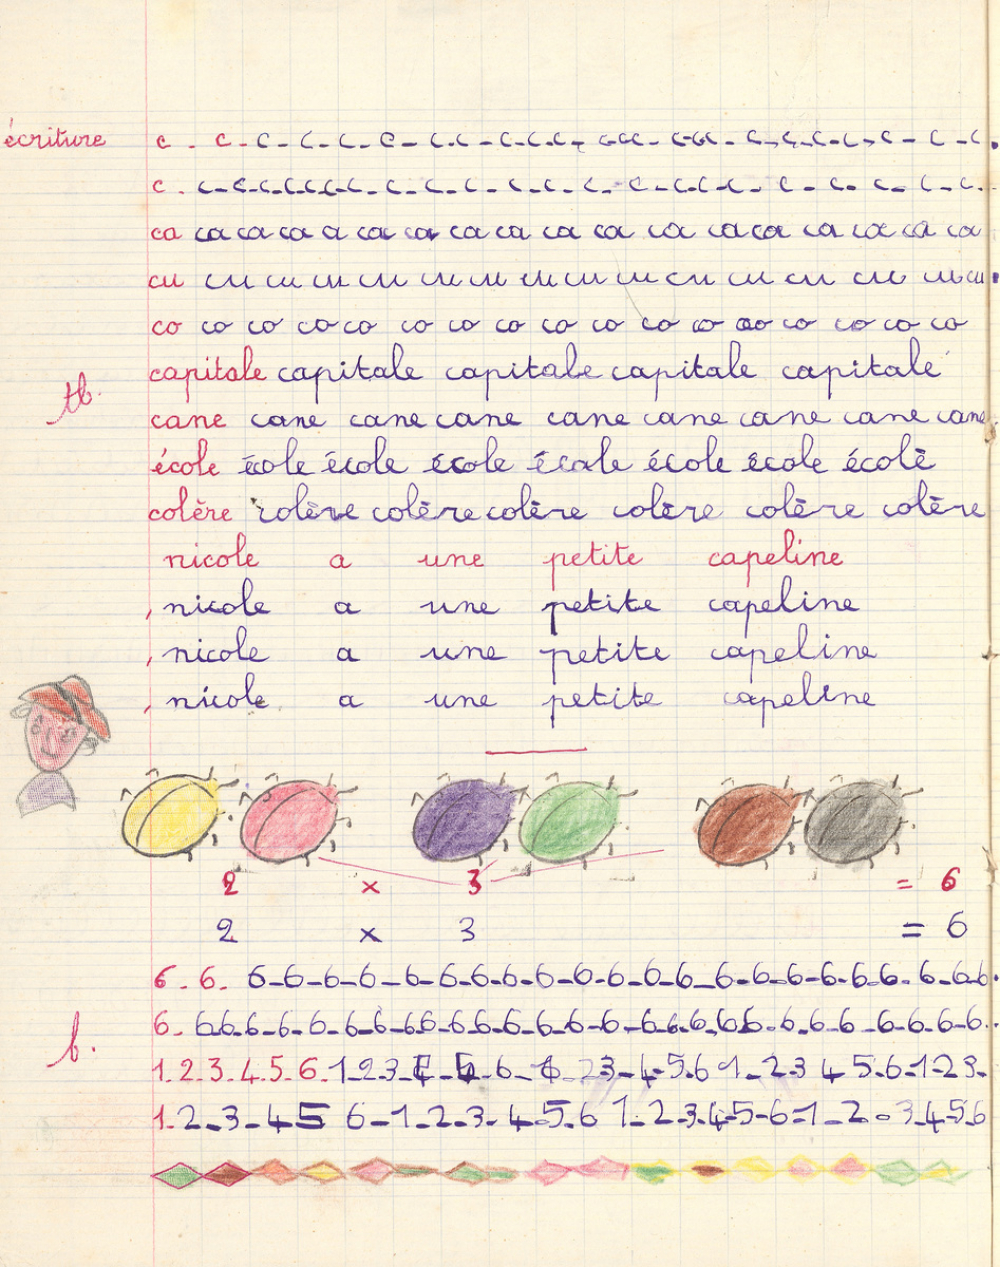 écriture c - c - c - c - c - c - c - c - c - c - c - c - c - c - cc - cc - c - c - c - c - c - c - c - c.
c . c - c - c - c - c - c - c - c - c - c - c - c - c - c - c - c - c - c - c - c - c - c.
ca ca ca ca a ca ca ca ca ca ca ca ca ca ca ca ca ca
cu cu cu cu cu cu cu cu cu cu cu cu cu cu cu cu
co co co co co co co co co co co co oo co co co co
capitale capitale capitale capitale capitale
tb.
cane cane cane cane cane cane cane cane cane
école école école école école école école école
colère colère colère colère colère colère colère
nicole a une petite capeline
nicole a une petite capeline
nicole a une petite capeline
nicole a une petite capeline
2 x 3 = 6
2 x 3 = 6
6 - 6 - 6 - 6 - 6 - 6 - 6 - 6 - 6 - 6 - 6 - 6 - 6 - 6 - 6 - 6 - 6 - 6 - 6 - 6 - 6 - 6 - 6 - 6 - 6.
6 - 6 6 - 6 - 6 - 6 - 6 - 6 - 6 6 - 6 - 6 - 6 - 6 - 6 - 6 - 6 - 6 - 6 - 6 6 - 6 - 6 - 6 - 6 - 6 - 6 - 6.
b.
1.2.3.4.5.6.1-2-3-4-5-6-1-23-4-5.6 1-2-3 4 5-6-1-2 3-
1-2-3-4 5 6-1-2-3-4-5-6 1-2-3-4-5-6-1-2-3-4 5 6